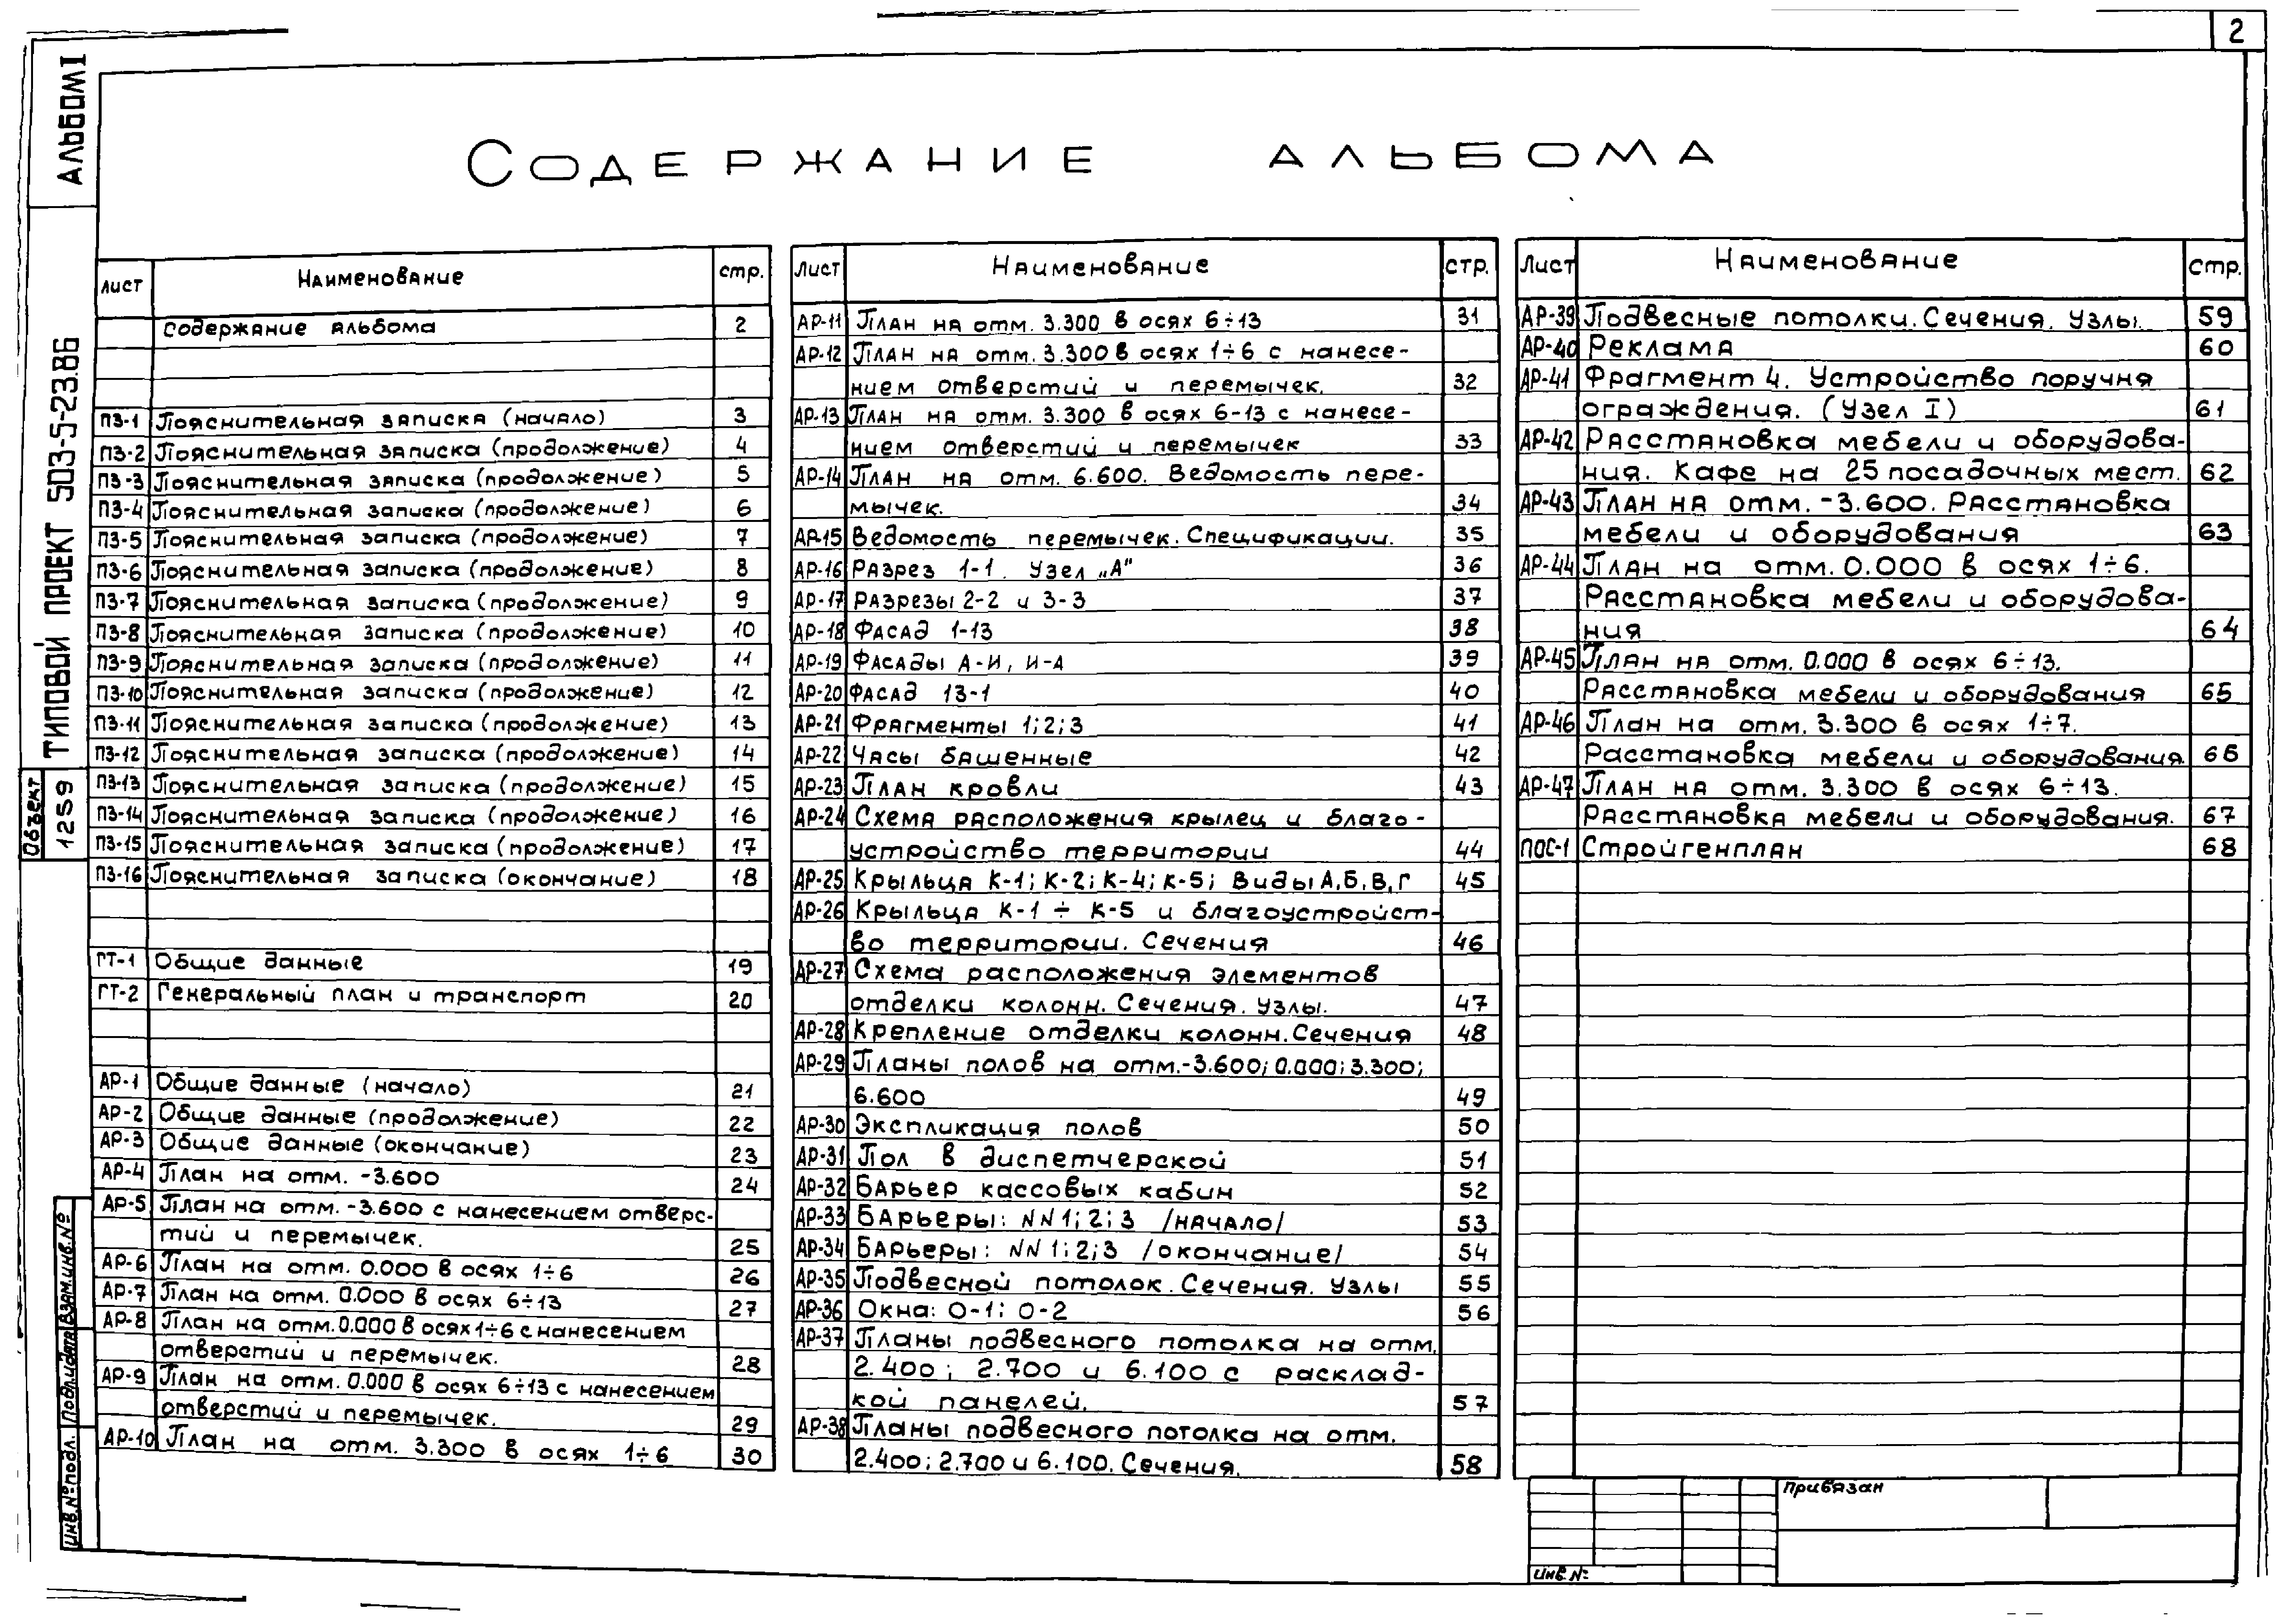 2
АЛЬБОМ I
ТИПОВОЙ ПРОЕКТ 503-5-23.86
Объект
1259
Содержание альбома
Лист Наименование стр.
Содержание альбома 2
ПЗ-1 Пояснительная записка (начало) 3
ПЗ-2 Пояснительная записка (продолжение) 4
ПЗ-3 Пояснительная записка (продолжение) 5
ПЗ-4 Пояснительная записка (продолжение) 6
ПЗ-5 Пояснительная записка (продолжение) 7
ПЗ-6 Пояснительная записка (продолжение) 8
ПЗ-7 Пояснительная записка (продолжение) 9
ПЗ-8 Пояснительная записка (продолжение) 10
ПЗ-9 Пояснительная записка (продолжение) 11
ПЗ-10 Пояснительная записка (продолжение) 12
ПЗ-11 Пояснительная записка (продолжение) 13
ПЗ-12 Пояснительная записка (продолжение) 14
ПЗ-13 Пояснительная записка (продолжение) 15
ПЗ-14 Пояснительная записка (продолжение) 16
ПЗ-15 Пояснительная записка (продолжение) 17
ПЗ-16 Пояснительная записка (окончание) 18
ГТ-1 Общие данные 19
ГТ-2 Генеральный план и транспорт 20
АР-1 Общие данные (начало) 21
АР-2 Общие данные (продолжение) 22
АР-3 Общие данные (окончание) 23
АР-4 План на отм. -3.600 24
АР-5 План на отм. -3.600 с нанесением отверс-
тий и перемычек. 25
АР-6 План на отм. 0.000 в осях 1÷6 26
АР-7 План на отм. 0.000 в осях 6÷13 27
АР-8 План на отм. 0.000 в осях 1÷6 с нанесением
отверстий и перемычек. 28
АР-9 План на отм. 0.000 в осях 6÷13 с нанесением
отверстий и перемычек. 29
АР-10 План на отм. 3.300 в осях 1÷6 30
Лист Наименование стр.
АР-11 План на отм. 3.300 в осях 6÷13 31
АР-12 План на отм. 3.300 в осях 1÷6 с нанесе-
нием отверстий и перемычек. 32
АР-13 План на отм. 3.300 в осях 6-13 с нанесе-
нием отверстий и перемычек 33
АР-14 План на отм. 6.600. Ведомость пере-
мычек. 34
АР-15 Ведомость перемычек. Спецификации. 35
АР-16 Разрез 1-1. Узел „А" 36
АР-17 Разрезы 2-2 и 3-3 37
АР-18 Фасад 1-13 38
АР-19 Фасады А-И, И-А 39
АР-20 Фасад 13-1 40
АР-21 Фрагменты 1; 2; 3 41
АР-22 Часы башенные 42
АР-23 План кровли 43
АР-24 Схема расположения крылец и благо-
устройство территории 44
АР-25 Крыльца К-1; К-2; К-4; К-5; Виды А, Б, В, Г 45
АР-26 Крыльца К-1 ÷ К-5 и благоустройст-
во территории. Сечения 46
АР-27 Схема расположения элементов
отделки колонн. Сечения. Узлы. 47
АР-28 Крепление отделки колонн. Сечения 48
АР-29 Планы полов на отм.-3.600; 0.000; 3.300;
6.600 49
АР-30 Экспликация полов 50
АР-31 Пол в диспетчерской 51
АР-32 Барьер кассовых кабин 52
АР-33 Барьеры: NN 1; 2; 3 /начало/ 53
АР-34 Барьеры: NN 1; 2; 3 /окончание/ 54
АР-35 Подвесной потолок. Сечения. Узлы 55
АР-36 Окна: О-1; О-2 56
АР-37 Планы подвесного потолка на отм.
2.400; 2.700 и 6.100 с расклад-
кой панелей. 57
АР-38 Планы подвесного потолка на отм.
2.400; 2.700 и 6.100. Сечения. 58
Лист Наименование стр.
АР-39 Подвесные потолки. Сечения. Узлы. 59
АР-40 Реклама 60
АР-41 Фрагмент 4. Устройство поручня
ограждения. (Узел I) 61
АР-42 Расстановка мебели и оборудова-
ния. Кафе на 25 посадочных мест. 62
АР-43 План на отм. -3.600. Расстановка
мебели и оборудования 63
АР-44 План на отм. 0.000 в осях 1÷6.
Расстановка мебели и оборудова-
ния 64
АР-45 План на отм. 0.000 в осях 6÷13.
Расстановка мебели и оборудования 65
АР-46 План на отм. 3.300 в осях 1÷7.
Расстановка мебели и оборудования 66
АР-47 План на отм. 3.300 в осях 6÷13.
Расстановка мебели и оборудования. 67
ПОС-1 Стройгенплан 68
Инв.№подл. Подп.и дата Взам.инв.№
Привязан
Инв.№